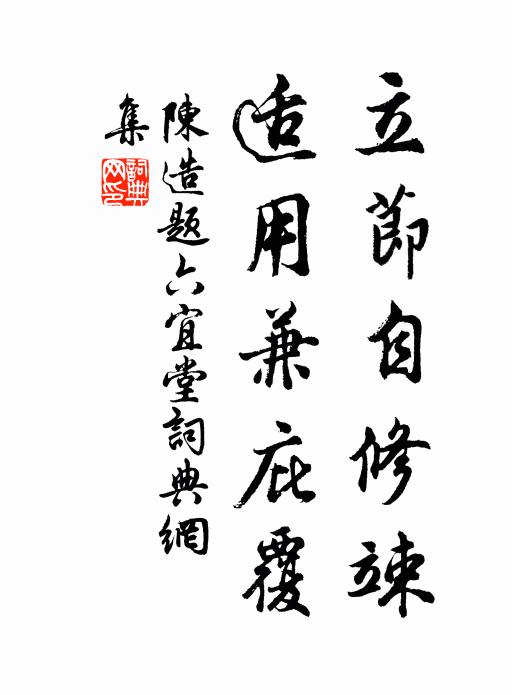 立節自修竦
适用兼庇覆
陳造題六宜堂詞典網
集
詞典網印